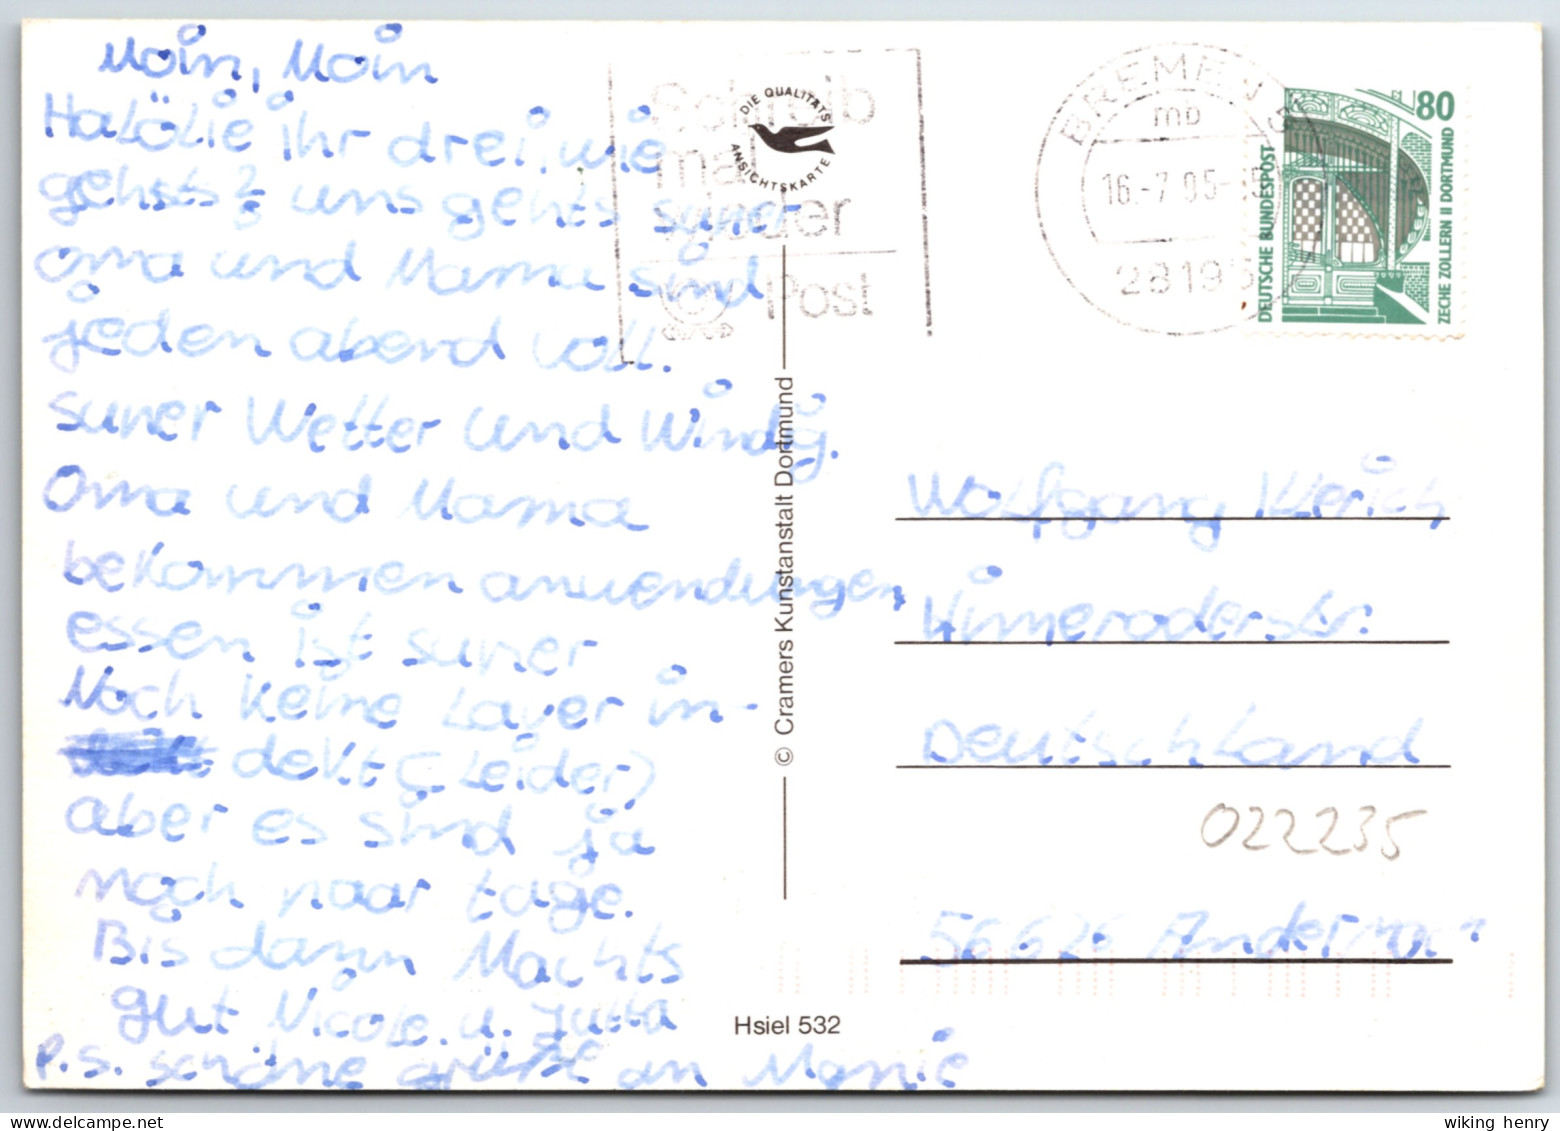 Moin, Moin
Halölie ihr drei, wie
gehts? uns gehts super
Oma und Mama sind
jeden abend voll.
super Wetter und Windig.
Oma und Mama
bekommen anwendungen,
essen ist super
Noch keine Layer in-
dekt (Leider)
aber es sind ja
noch paar tage.
Bis dann Machts
gut Nicole u. Jutta
P.S. schöne grüße an Manie
Schreib
mal
wieder
Post
DIE QUALITÄTS
ANSICHTSKARTE
© Cramers Kunstanstalt Dortmund
Hsiel 532
BREMEN 5
mb
16.-7.95-
28195
80
DEUTSCHE BUNDESPOST
ZECHE ZOLLERN II DORTMUND
Wolfgang Klerich,
Deutschland
022235
56626 Andernach
wiking henry